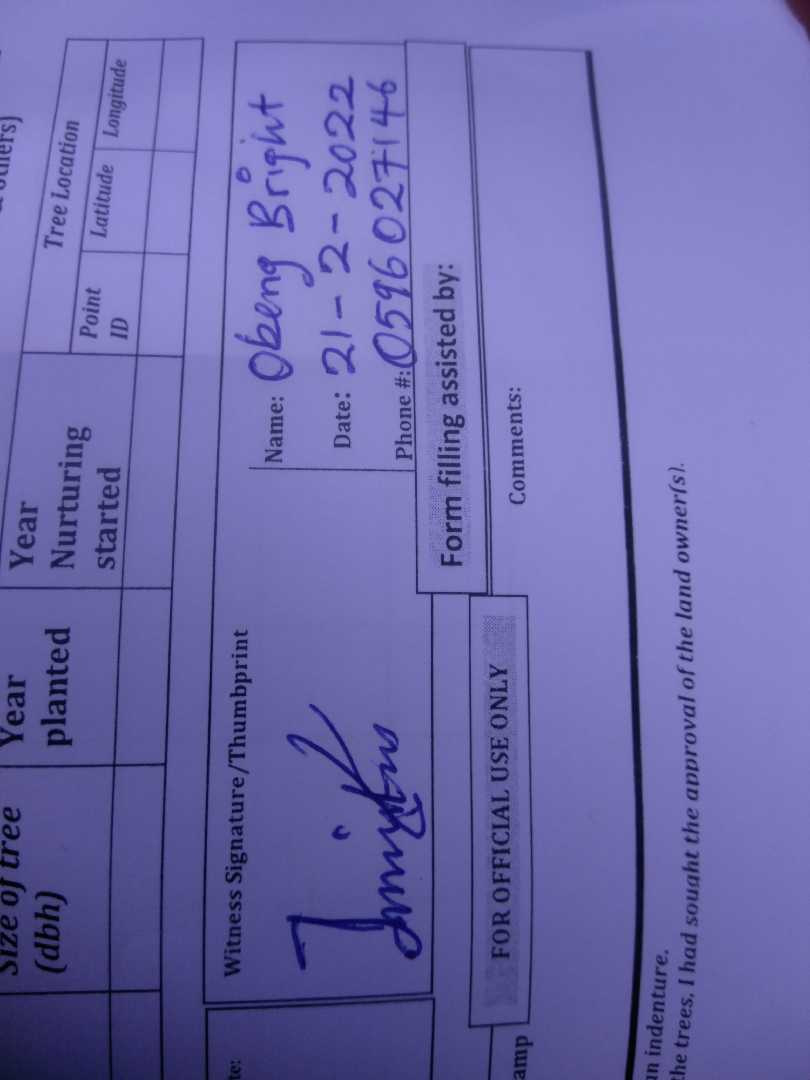 Size of tree
(dbh)
Year
planted
Year
Nurturing
started
Tree Location
Point
ID
Latitude
Longitude
Witness Signature/Thumbprint
Name: Obeng Bright
Date: 21-2-2022
Phone #: 0596027146
Form filling assisted by:
FOR OFFICIAL USE ONLY
Comments:
an indenture.
the trees, I had sought the approval of the land owner(s).